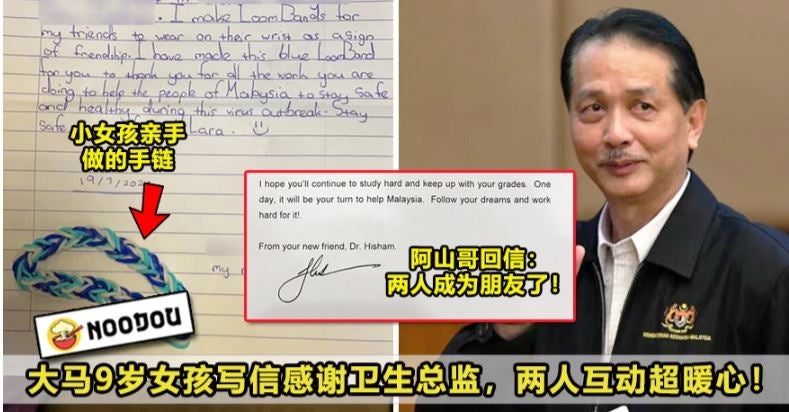 . I make LoomBands for
my friends to wear on their wrist as a sign
of friendship. I have made this blue LoomBand
for you to thank you for all the work you are
doing to help the people of Malaysia to stay safe
and healthy during this virus outbreak. Stay
safe
Lara. :)
小女孩亲手
做的手链
my
I hope you'll continue to study hard and keep up with your grades. One
day, it will be your turn to help Malaysia. Follow your dreams and work
hard for it!.
From your new friend, Dr. Hisham.
阿山哥回信：
两人成为朋友了！
NOODOU
KEMENTERIAN KESIHATAN MALAYSIA
大马9岁女孩写信感谢卫生总监，两人互动超暖心！